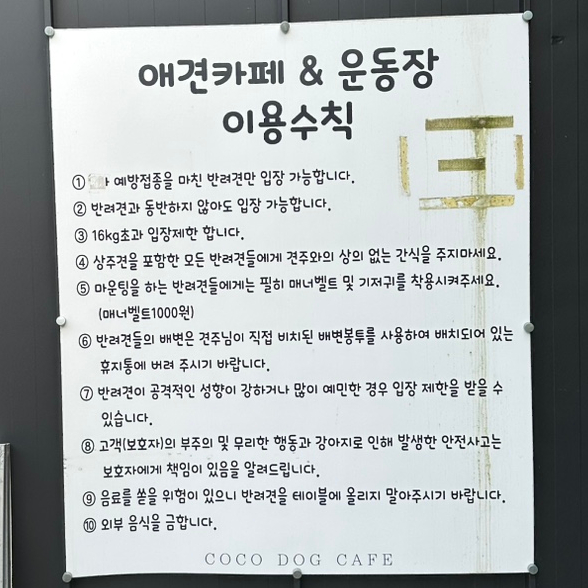 애견카페 & 운동장
이용수칙
① 예방접종을 마친 반려견만 입장 가능합니다.
② 반려견과 동반하지 않아도 입장 가능합니다.
③ 16kg초과 입장제한 합니다.
④ 상주견을 포함한 모든 반려견들에게 견주와의 상의 없는 간식을 주지마세요.
⑤ 마운팅을 하는 반려견들에게는 필히 매너벨트 및 기저귀를 착용시켜주세요.
(매너벨트1000원)
⑥ 반려견들의 배변은 견주님이 직접 비치된 배변봉투를 사용하여 배치되어 있는
휴지통에 버려 주시기 바랍니다.
⑦ 반려견이 공격적인 성향이 강하거나 많이 예민한 경우 입장 제한을 받을 수
있습니다.
⑧ 고객(보호자)의 부주의 및 무리한 행동과 강아지로 인해 발생한 안전사고는
보호자에게 책임이 있음을 알려드립니다.
⑨ 음료를 쏟을 위험이 있으니 반려견을 테이블에 올리지 말아주시기 바랍니다.
⑩ 외부 음식을 금합니다.
COCO DOG CAFE